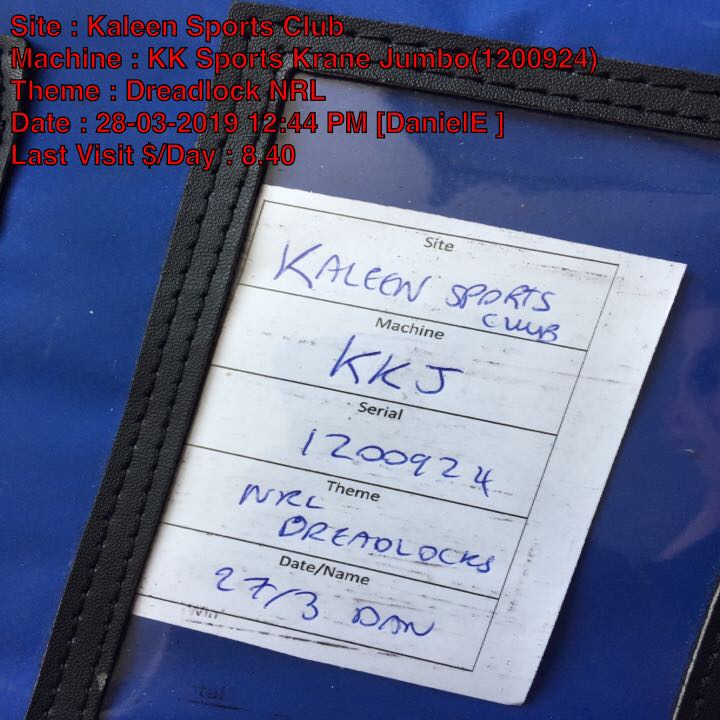 Site : Kaleen Sports Club
Machine : KK Sports Krane Jumbo(1200924)
Theme : Dreadlock NRL
Date : 28-03-2019 12:44 PM [DanielE ]
Last Visit $/Day : 8.40
Site
KALEEN SPORTS
CLUB
Machine
KKJ
Serial
1200924
Theme
NRL
DREADLOCKS
Date/Name
27/3 DAN
Win
tal